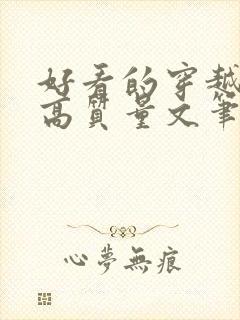 好看的穿越
高质量文笔
心夢無痕